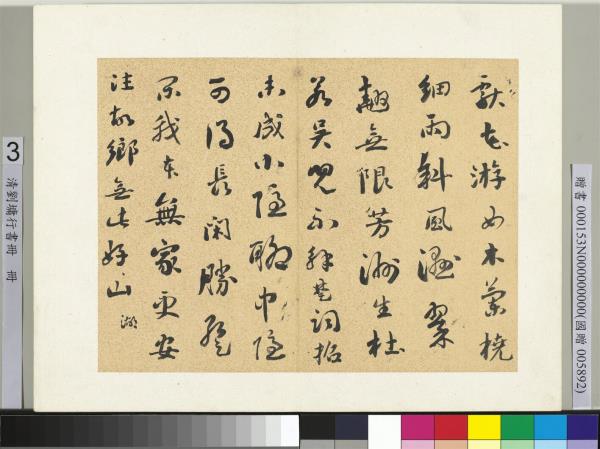 獻花游女木蘭橈
細雨斜風濕翠
翹無限芳洲生杜
若吳兒不楚詞招
未成小隱聊中隱
可得長閑勝暫
閑我本無家更安
往故鄉無此好山 湖
3
清劉墉行書冊 冊
贈書 000153N000000000(國贈 005892)